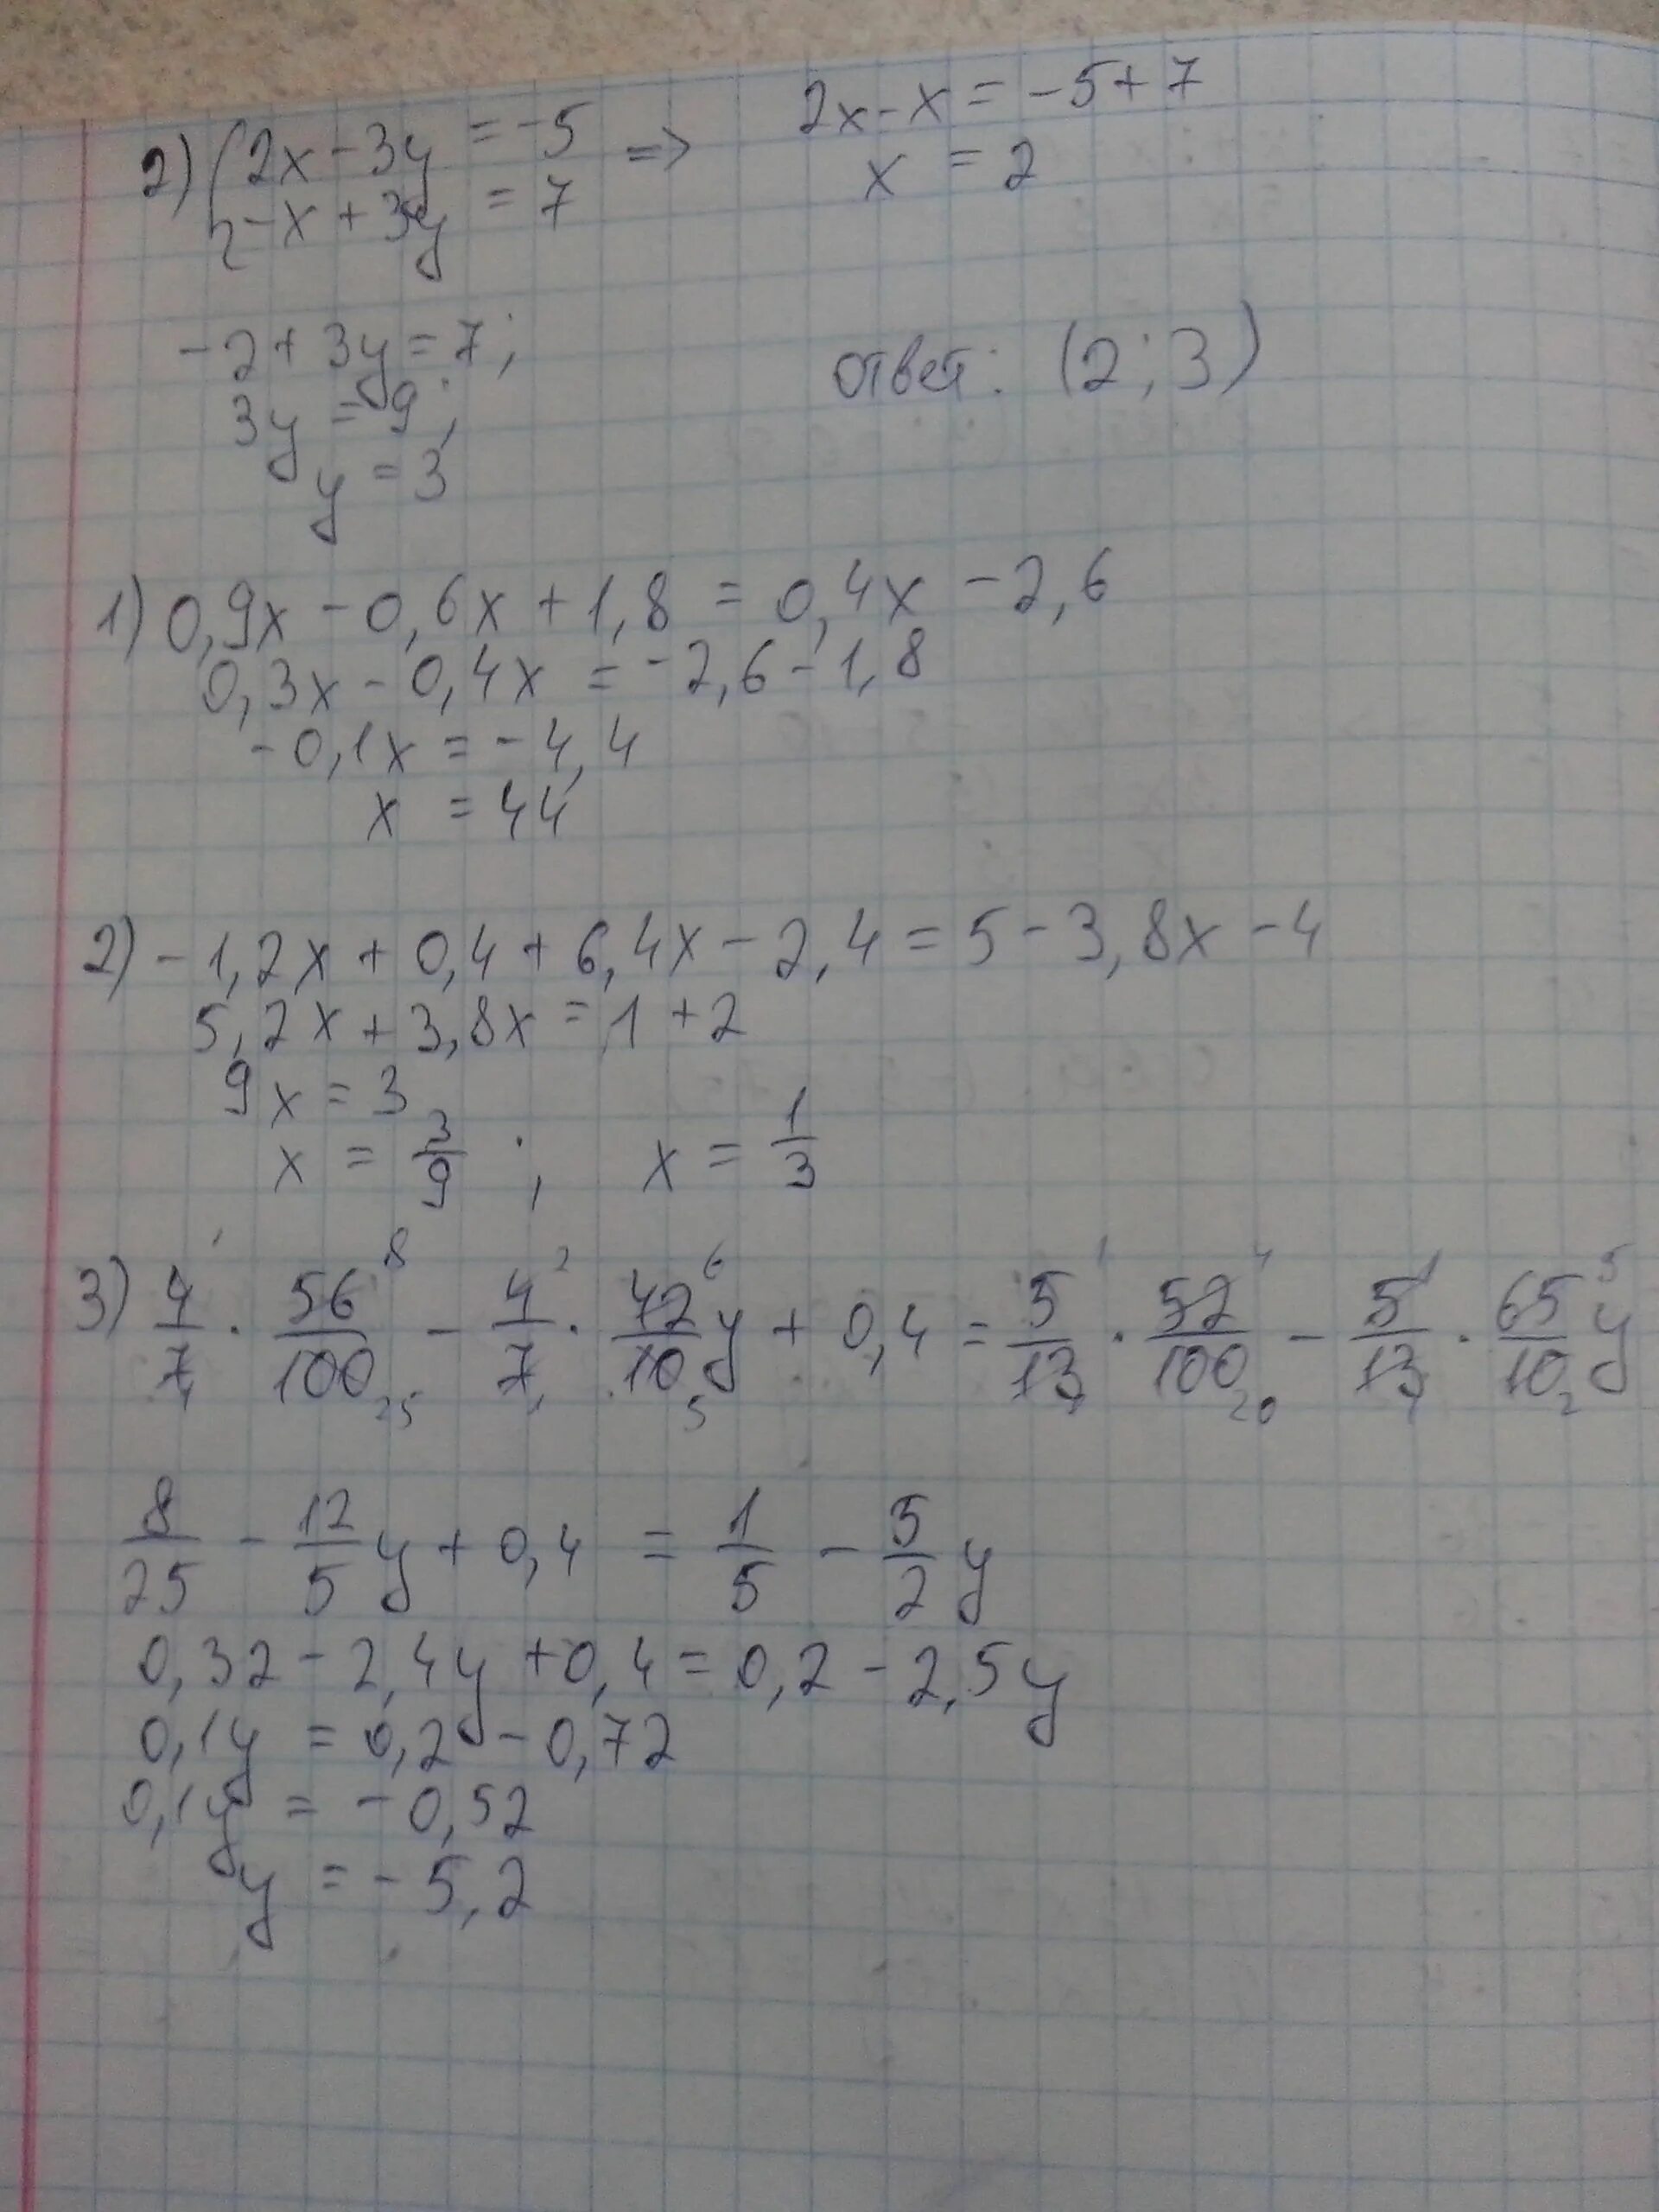 2) { 2x - 3y = -5 => 2x - x = -5 + 7
-x + 3y = 7 x = 2
-2 + 3y = 7;
3y = 9;
y = 3
ответ: (2; 3)
1) 0,9x - 0,6x + 1,8 = 0,4x - 2,6
0,3x - 0,4x = -2,6 - 1,8
-0,1x = -4,4
x = 44
2) -1,2x + 0,4 + 6,4x - 2,4 = 5 - 3,8x - 4
5,2x + 3,8x = 1 + 2
9x = 3
x = 3/9 ; x = 1/3
3) 4/7 · 56/100 - 4/7 · 42/10 y + 0,4 = 5/13 · 52/100 - 5/13 · 65/10 y
8/25 - 12/5 y + 0,4 = 1/5 - 5/2 y
0,32 - 2,4y + 0,4 = 0,2 - 2,5y
0,1y = 0,2 - 0,72
0,1y = -0,52
y = -5,2